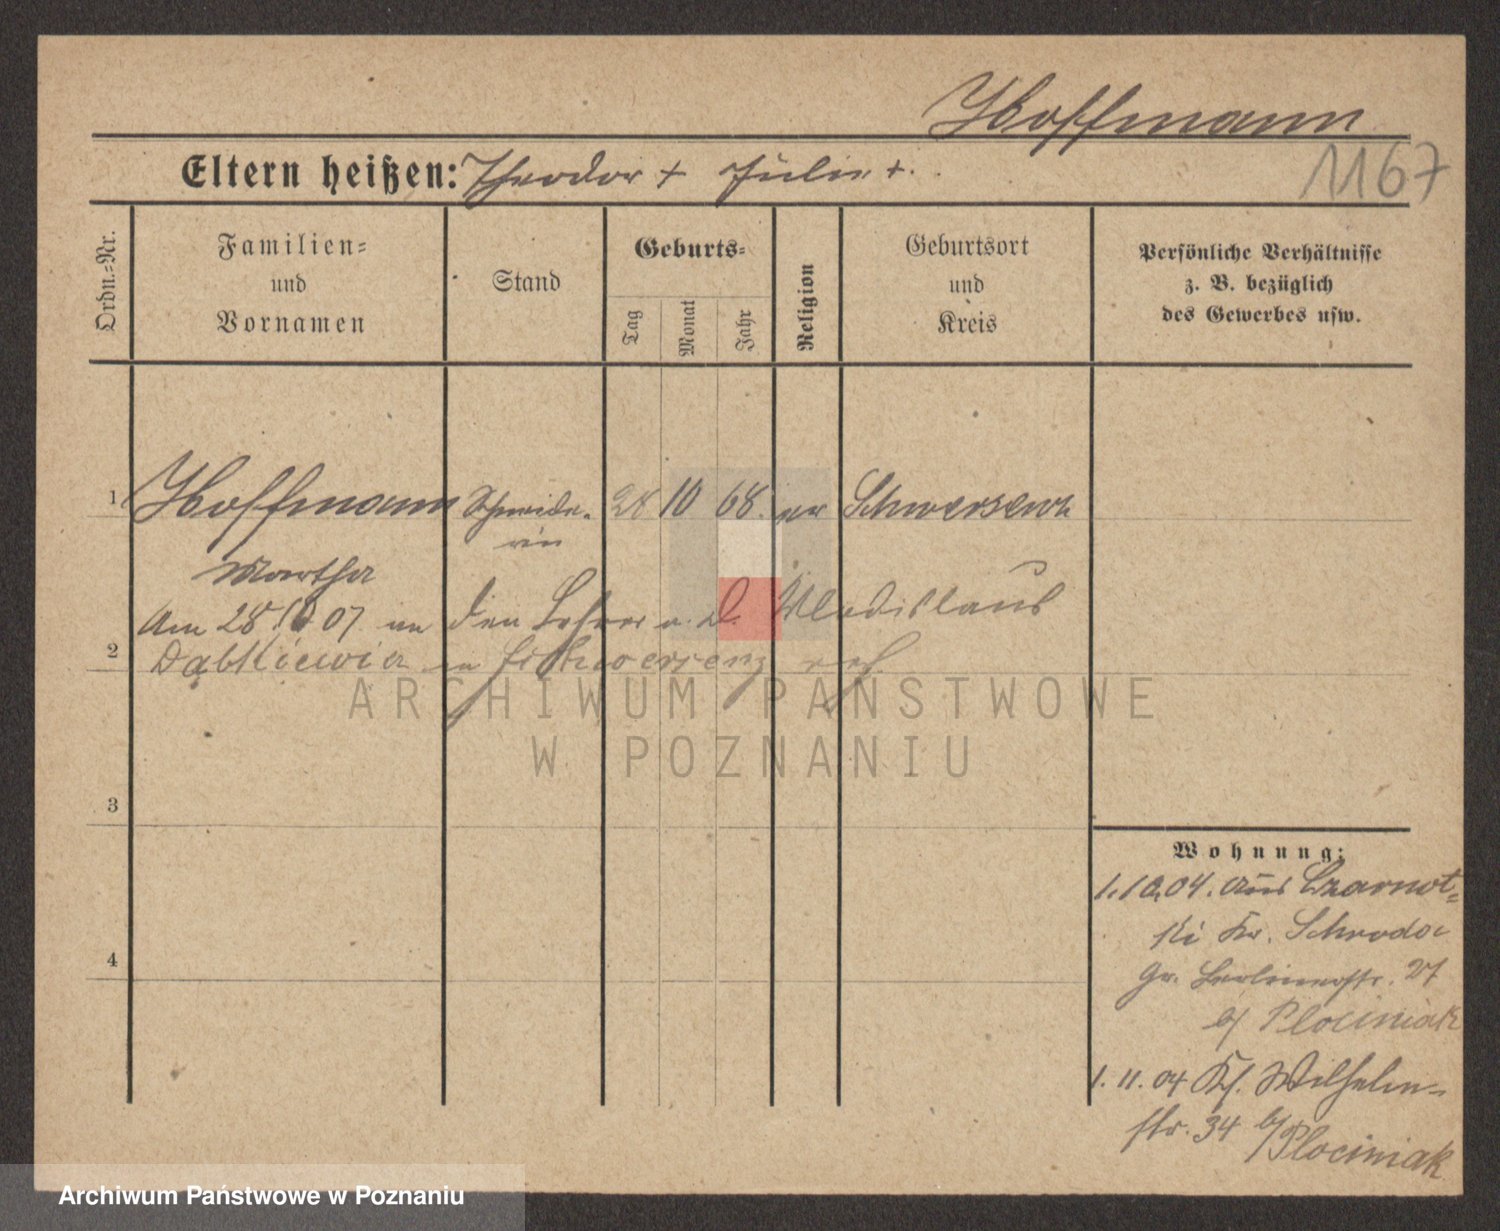 Hoffmann
Eltern heißen: Theodor + Julie +.
1167
Ordn.=Nr.
Familien=
und
Vornamen
Stand
Geburts=
Tag
Monat
Jahr
Religion
Geburtsort
und
Kreis
Persönliche Verhältnisse
z. B. bezüglich
des Gewerbes usw.
1
Hoffmann Schneide= 28 10 68. ev Schwersenz
rin
Martha
Am 28 10 07 an den Lehrer a. D. Wladislaus
2
in Schwersenz verh.
3
4
Wohnung:
1.10.04. aus Czarnot=
ki Kr. Schroda
Gr. Berlinerstr. 27
b/ Plociniak
1. 11. 04 Kl. Wilhelm=
str. 34 b/ Plociniak
ARCHIWUM PAŃSTWOWE
W POZNANIU
Archiwum Państwowe w Poznaniu